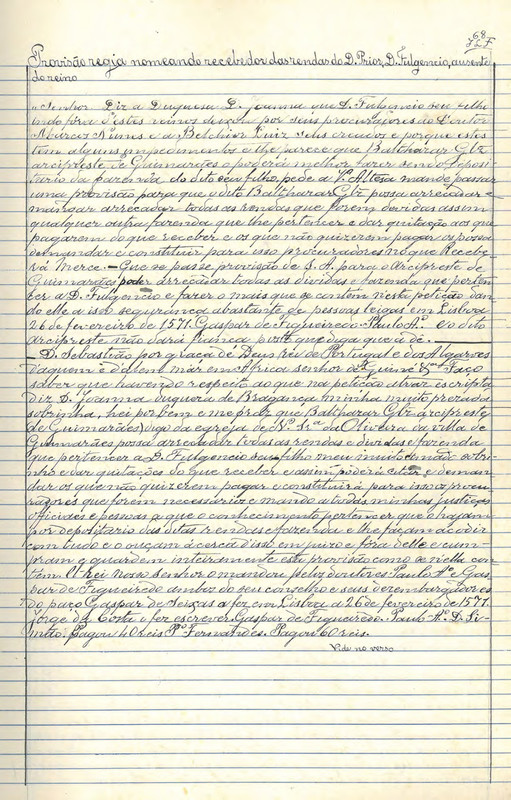 68
Provisão regia nomeando recebedor das rendas do D. Prior, D. Fulgencio, ausente
do reino
"Senhor. Diz a Duqueza D. Joanna que D. Fulgencio seu filho
indo fora d'estes reinos deixou por seus procuradores ao Doutor
Marcos Nunes e a Belchior Luiz seus creados e porque estes
têm alguns impedimentos e lhe parece que Balthazar Glz
arcipreste de Guimarães o poderá melhor fazer sendo deposi-
tario da fazenda do dito seu filho, pede a V. Alteza mande passar
uma provisão para que o dito Balthazar Glz possa arrecadar e
mandar arrecadar todas as rendas que forem devidas assim
qualquer outra fazenda que lhe pertencer e dar quitação aos que
pagarem do que receber e os que não quizerem pagar os possa
demandar e constituir para isso procuradores no que Recebe-
rá Mercê. — Que se passe provisão de S. A. para o Arcipreste de
Guimarães poder arrecadar todas as dividas e fazenda que perten-
cer a D. Fulgencio e fazer o mais que se contem n'esta petição dan-
do elle a isso segurança abastante de pessoas leigas em Lisboa
26 de fevereiro de 1571. Gaspar de Figueiredo. Paulo Aº. e o dito
arcipreste não dará fiança posto que diga que a dê. —
— D. Sebastião por graça de Deus rei de Portugal e dos Algarves
d'aquem e d'alem mar em Africa senhor de Guiné &ª Faço
saber que havendo respeito ao que na petição atraz escripta
diz D. Joanna duqueza de Bragança minha muito prezada
sobrinha, hei por bem e me praz que Balthazar Glz arcipreste
de Guimarães, digo da egreja de Nª Srª da Oliveira da villa de
Guimarães possa arrecadar todas as rendas e dividas e fazenda
que pertencer a D. Fulgencio seu filho meu muito amado sobri-
nho e dar quitações do que receber e assim poderá citar e deman-
dar os que não quizerem pagar e constituirá para isso procu-
radores que forem necessarios e mando a todas minhas justiças
officiaes e pessoas a que o conhecimento pertencer que o hajam
por depositario das ditas rendas e fazenda e lhe façam acodir
com tudo e o ouçam ácerca d'isso em juizo e fóra d'elle e cum-
pram e guardem inteiramente esta provisão como se n'ella con-
tem. El rei Nosso Senhor o mandou pelos doutores Paulo Aº e Gas-
par de Figueiredo ambos do seu conselho e seus desembargadores
do paço. Gaspar de Seixas a fez em Lisboa a 26 de fevereiro de 1571.
Jorge da Costa o fez escrever. Gaspar de Figueiredo. Paulo Aº. D. Si-
mão. Pagou 40 reis. Pº Fernandes. Pagou 60 reis.
Vide no verso